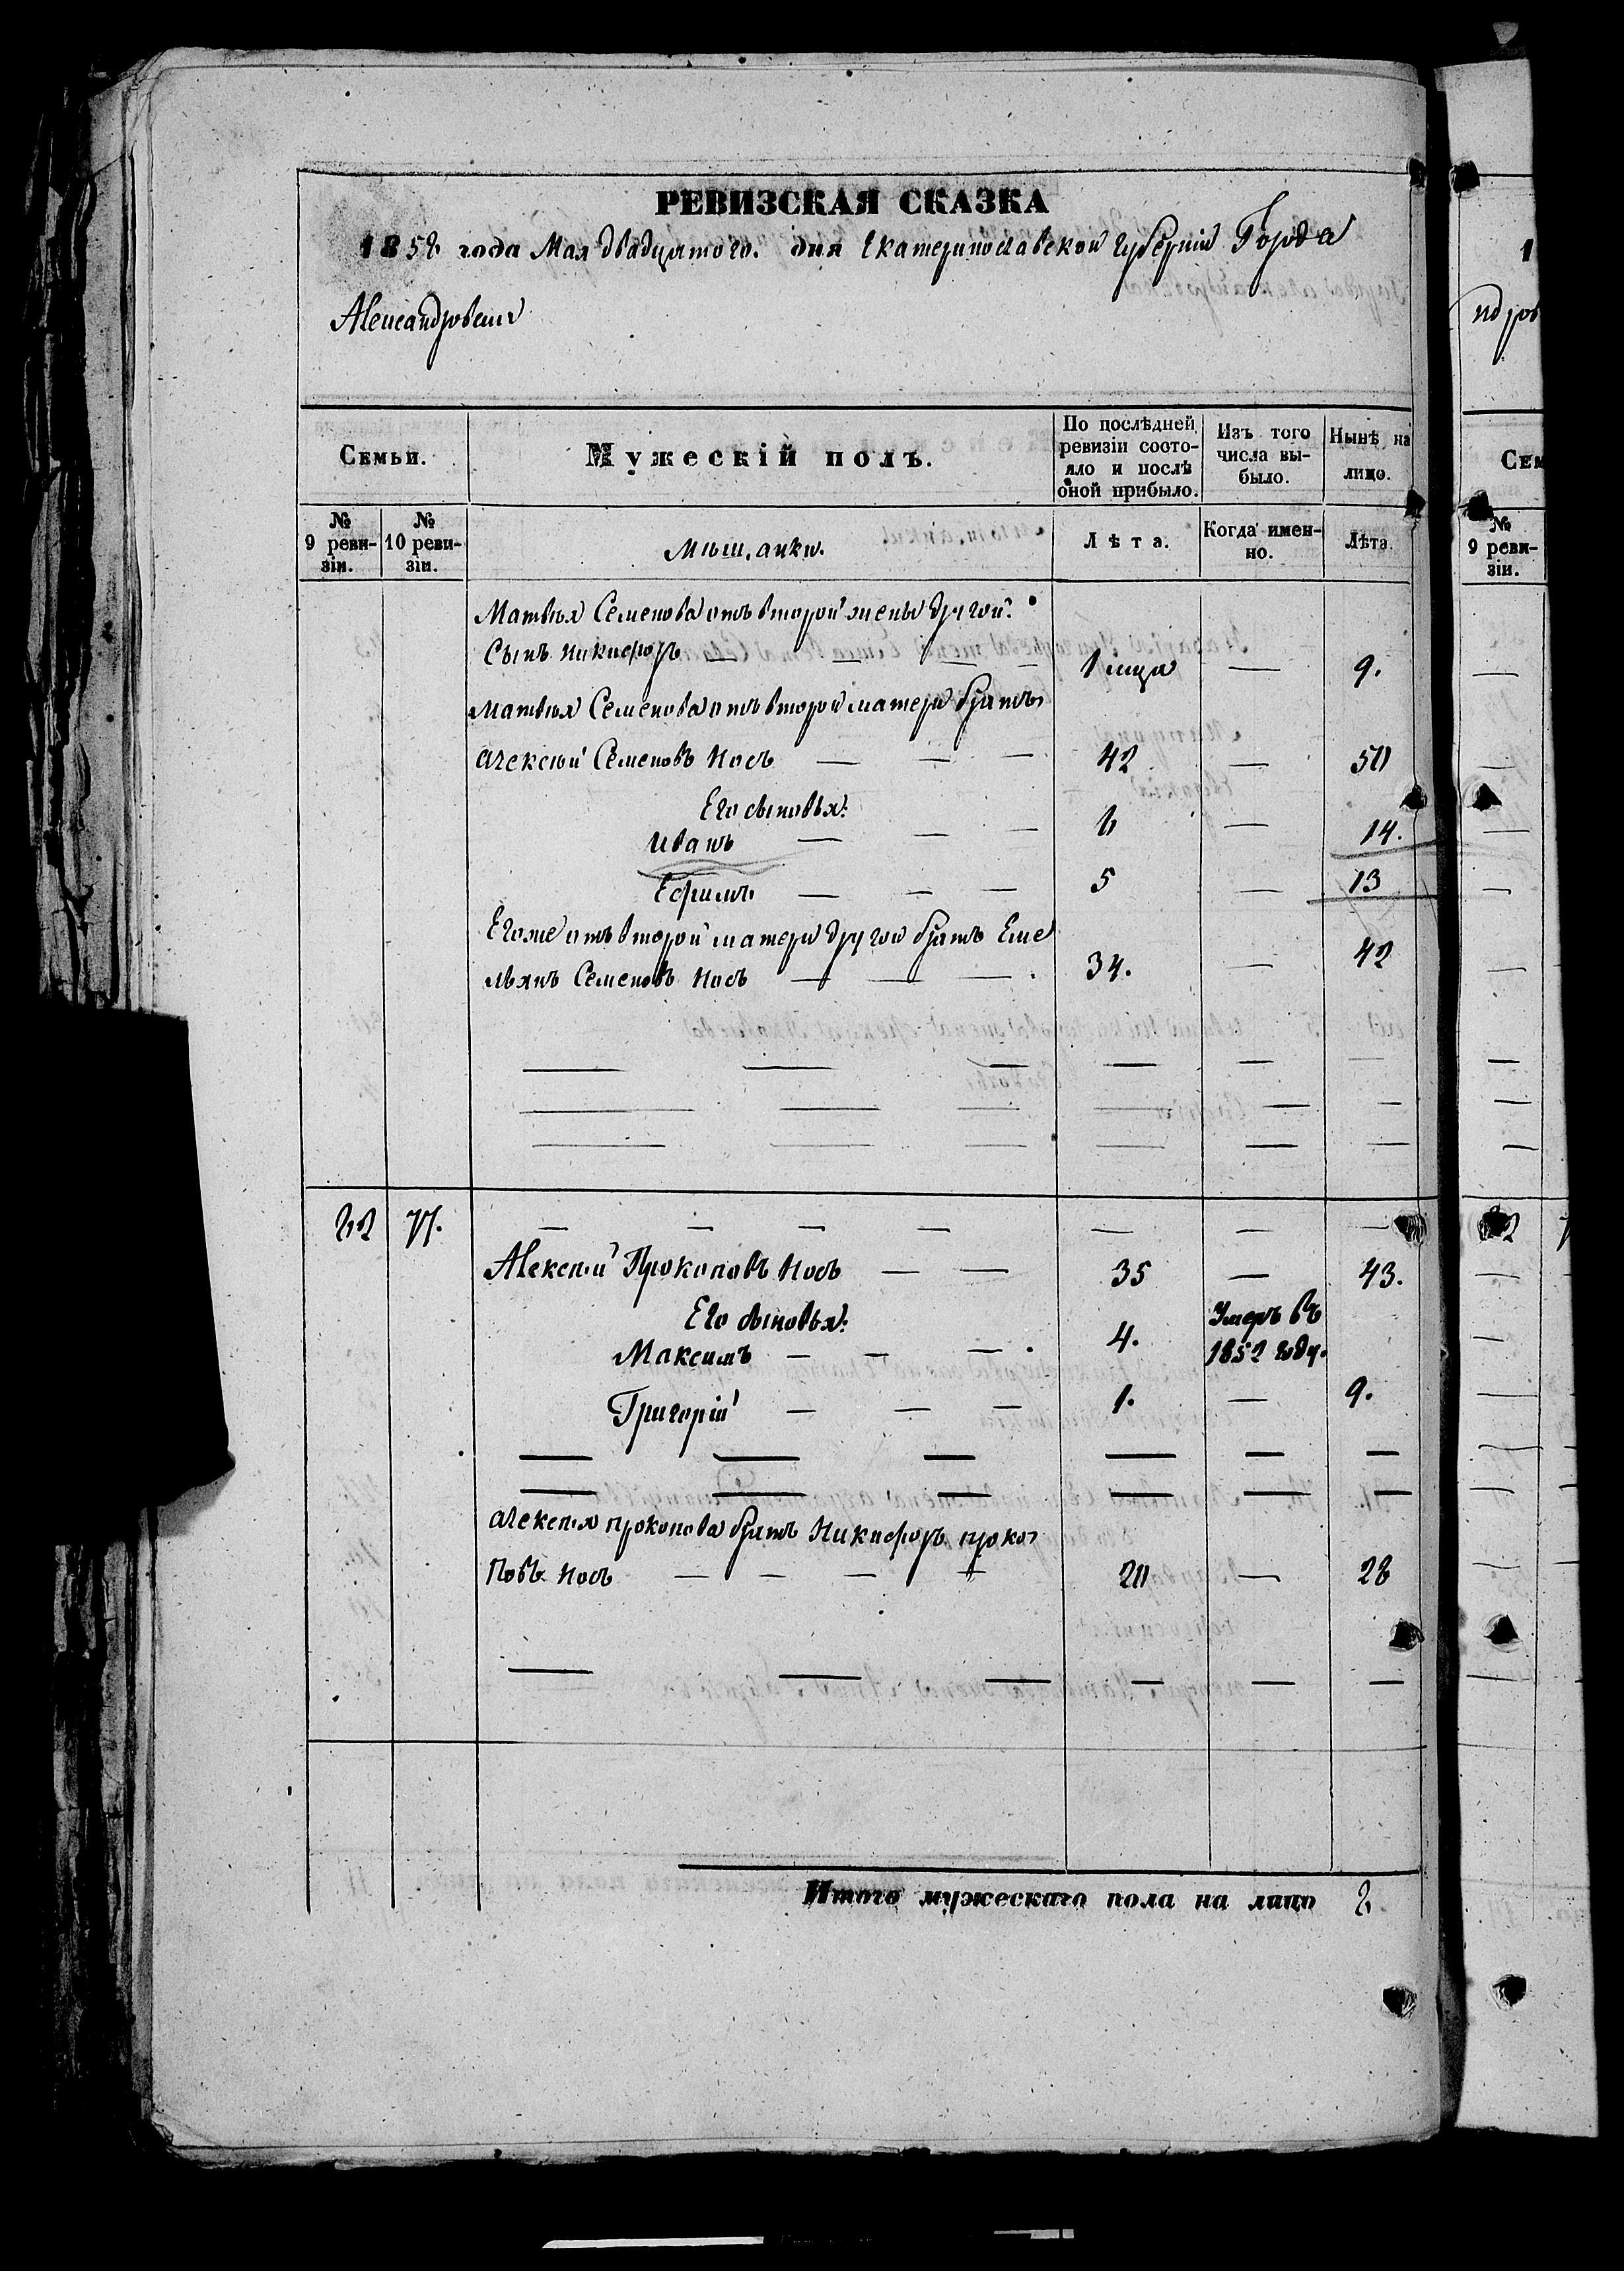 РЕВИЗСКАЯ СКАЗКА
1858 года Мая двадцятого. дня Екатеринославской губерніи Города
Александровска
Семьи. Мужескій полъ. По послѣдней ревизіи состояло и послѣ оной прибыло. Изъ того числа выбыло. Нынѣ на лицо.
№ 9 ревизіи. № 10 ревизіи. Мѣщанки. Лѣта. Когда именно. Лѣта.
Матвѣя Семенова отъ второй жены другой
Сынъ Никифоръ — — — — 1 мца — 9.
Матвѣя Семенова отъ второй матери братъ
Алексѣй Семеновъ Носъ — — — 42 — 50
Его сыновья:
Иванъ — — — 6 — 14.
Ефимъ — — — 5 — 13
Его же отъ второй матери другой братъ Еме
льянъ Семеновъ Носъ — — — 34. — 42
22 77. — — — — — — —
Алексѣй Прокоповъ Носъ — — 35 — 43.
Его сыновья:
Максимъ — — — 4. Умеръ въ 1852 году.
Григорій — — — 1. — 9.
Алексѣя Прокопова братъ Никифоръ Проко
повъ Носъ — — — — 20 — 28
Итого мужескаго пола на лицо 8
1
ндров
Сем
№
9 реви-
зіи.